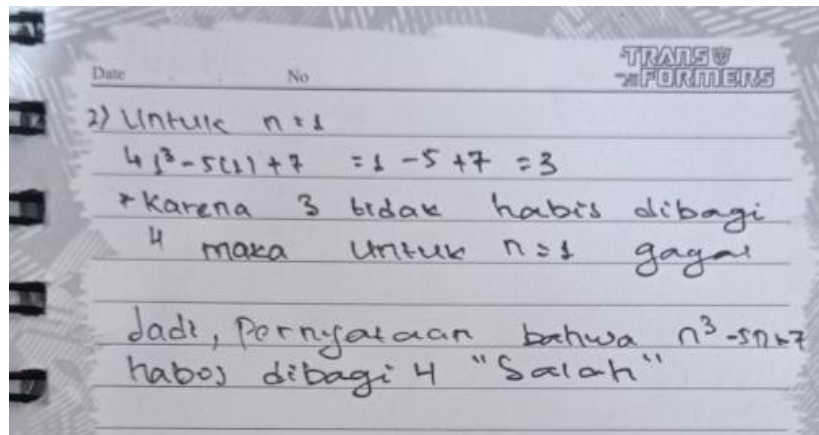 TRANS
FORMERS
Date No
2) Untuk n = 1
4 1³ - 5(1) + 7 = 1 - 5 + 7 = 3
* Karena 3 tidak habis dibagi
4 maka untuk n = 1 gagal
Jadi, Pernyataan bahwa n³ - 5n + 7
habos dibagi 4 "Salah"